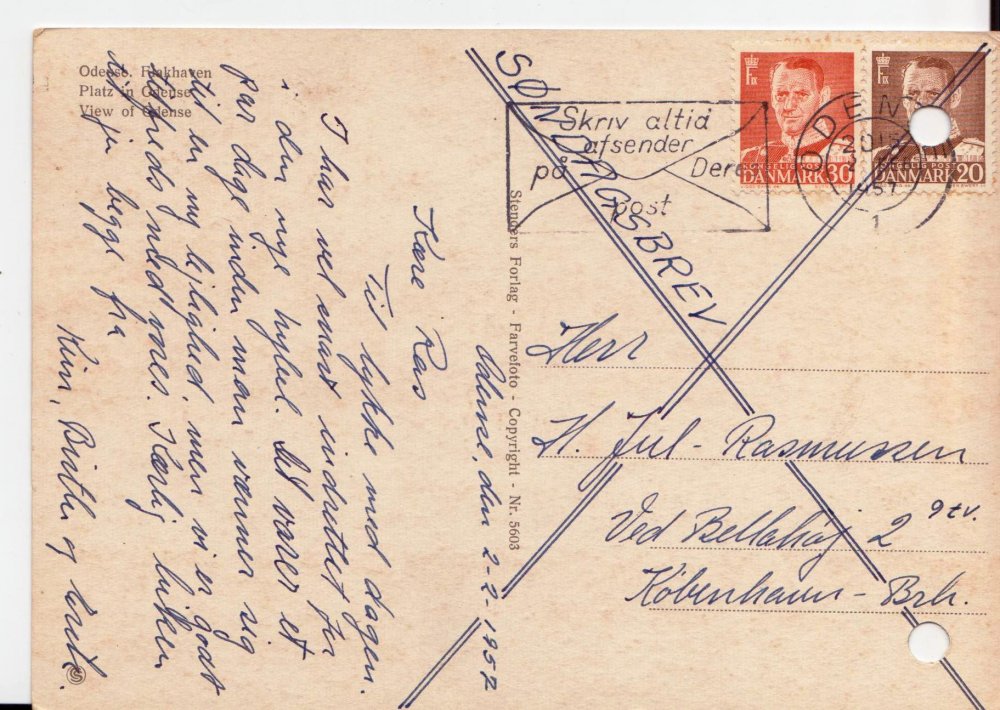 Odense. Flakhaven
Platz in Odense
View of Odense
SØNDAGSBREV
Skriv altid
afsender
på Deres
post
KONGELIG POST
DANMARK 30
KONGELIG POST
DANMARK 20
ODENSE
1957
1
Stenders Forlag - Farvefoto - Copyright - Nr. 5603
Odense, den 2-2-1957
Kære Ras
Til lykke med dagen.
I har vel snart indrettet jer
i den nye hybel. Det varer et
par dage inden man vænner sig
til en ny lejlighed, men vi er godt
tilfreds med vores. Kærlig hilsen
til jer begge fra
Kim, Birthe og Knud.
Herr
H. Juul-Rasmussen
Ved Bellahøj 2 9 tv.
København - Brh.